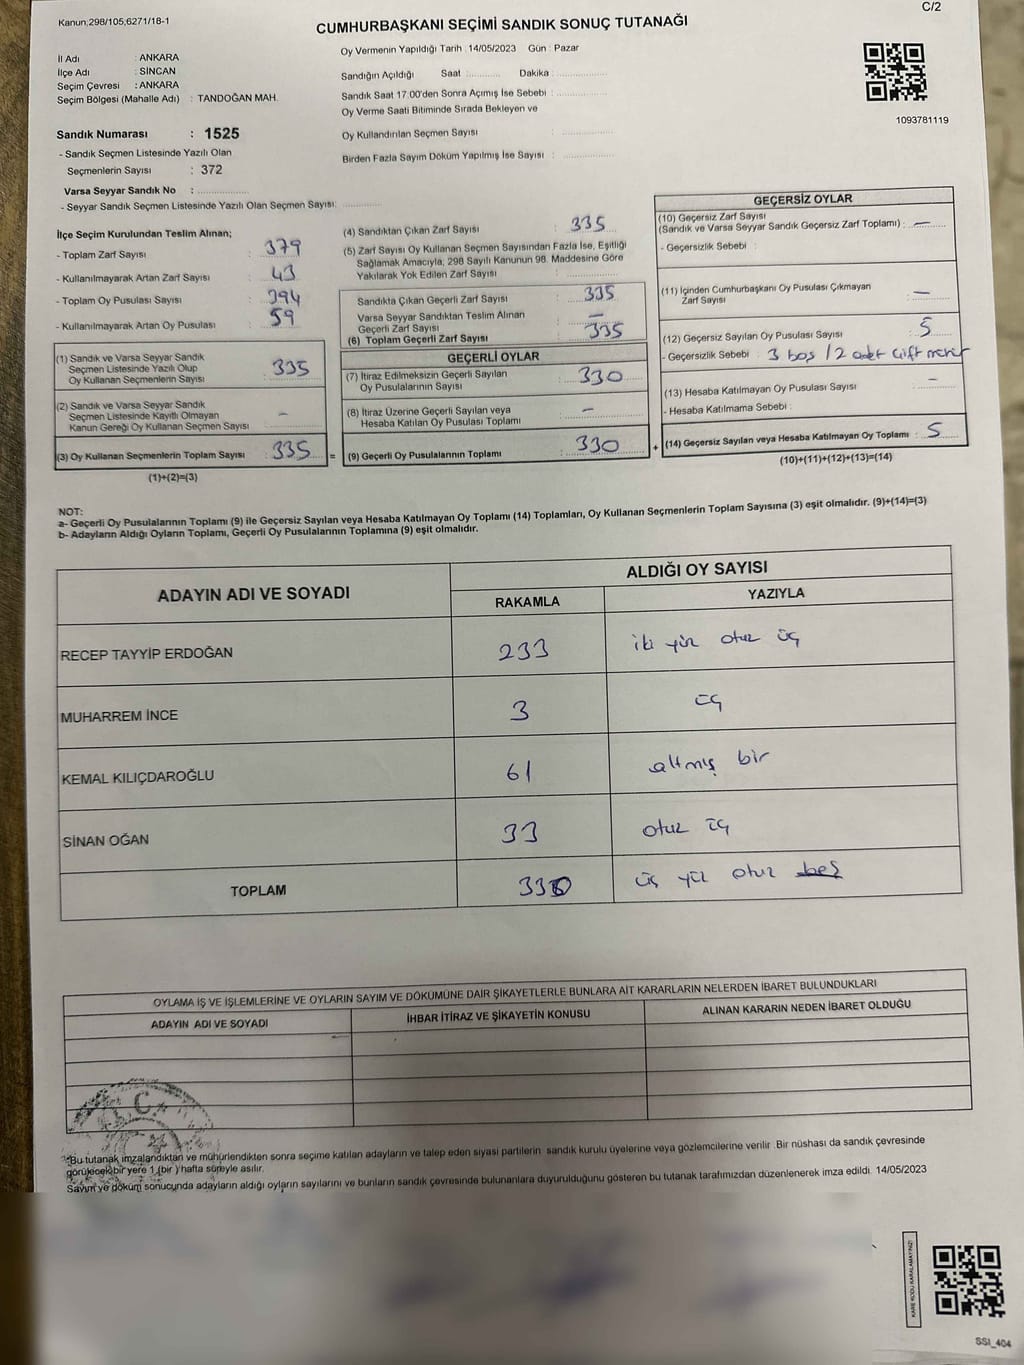 Kanun;298/105,6271/18-1
C/2
CUMHURBAŞKANI SEÇİMİ SANDIK SONUÇ TUTANAĞI
Oy Vermenin Yapıldığı Tarih :14/05/2023 Gün : Pazar
İl Adı : ANKARA
İlçe Adı : SİNCAN
Seçim Çevresi : ANKARA
Seçim Bölgesi (Mahalle Adı) : TANDOĞAN MAH.
Sandığın Açıldığı Saat :............ Dakika :................
Sandık Saat 17.00'den Sonra Açımış İse Sebebi :................
Oy Verme Saati Bitiminde Sırada Bekleyen ve
Oy Kullandırılan Seçmen Sayısı :................
Birden Fazla Sayım Döküm Yapılmış İse Sayısı :................
1093781119
Sandık Numarası : 1525
- Sandık Seçmen Listesinde Yazılı Olan
Seçmenlerin Sayısı : 372
Varsa Seyyar Sandık No :................
- Seyyar Sandık Seçmen Listesinde Yazılı Olan Seçmen Sayısı:............
İlçe Seçim Kurulundan Teslim Alınan;
- Toplam Zarf Sayısı : 379
- Kullanılmayarak Artan Zarf Sayısı : 43
- Toplam Oy Pusulası Sayısı : 394
- Kullanılmayarak Artan Oy Pusulası : 59
(1) Sandık ve Varsa Seyyar Sandık
Seçmen Listesinde Yazılı Olup
Oy Kullanan Seçmenlerin Sayısı : 335
(2) Sandık ve Varsa Seyyar Sandık
Seçmen Listesinde Kayıtlı Olmayan
Kanun Gereği Oy Kullanan Seçmen Sayısı : -
(3) Oy Kullanan Seçmenlerin Toplam Sayısı : 335 =
(1)+(2)=(3)
(4) Sandıktan Çıkan Zarf Sayısı : 335
(5) Zarf Sayısı Oy Kullanan Seçmen Sayısından Fazla İse, Eşitliği
Sağlamak Amacıyla, 298 Sayılı Kanunun 98. Maddesine Göre
Yakılarak Yok Edilen Zarf Sayısı :................
Sandıkta Çıkan Geçerli Zarf Sayısı : 335
Varsa Seyyar Sandıktan Teslim Alınan
Geçerli Zarf Sayısı : -
(6) Toplam Geçerli Zarf Sayısı : 335
GEÇERLİ OYLAR
(7) İtiraz Edilmeksizin Geçerli Sayılan
Oy Pusulalarının Sayısı : 330
(8) İtiraz Üzerine Geçerli Sayılan veya
Hesaba Katılan Oy Pusulası Toplamı : -
(9) Geçerli Oy Pusulalarının Toplamı : 330 +
GEÇERSİZ OYLAR
(10) Geçersiz Zarf Sayısı
(Sandık ve Varsa Seyyar Sandık Geçersiz Zarf Toplamı) : -
- Geçersizlik Sebebi :
(11) İçinden Cumhurbaşkanı Oy Pusulası Çıkmayan
Zarf Sayısı : -
(12) Geçersiz Sayılan Oy Pusulası Sayısı : 5
- Geçersizlik Sebebi : 3 boş / 2 adet çift mühür
(13) Hesaba Katılmayan Oy Pusulası Sayısı : -
- Hesaba Katılmama Sebebi :
(14) Geçersiz Sayılan veya Hesaba Katılmayan Oy Toplamı : 5
(10)+(11)+(12)+(13)=(14)
NOT:
a- Geçerli Oy Pusulalarının Toplamı (9) ile Geçersiz Sayılan veya Hesaba Katılmayan Oy Toplamı (14) Toplamları, Oy Kullanan Seçmenlerin Toplam Sayısına (3) eşit olmalıdır. (9)+(14)=(3)
b- Adayların Aldığı Oyların Toplamı, Geçerli Oy Pusulalarının Toplamına (9) eşit olmalıdır.
ADAYIN ADI VE SOYADI ALDIĞI OY SAYISI
RAKAMLA YAZIYLA
RECEP TAYYİP ERDOĞAN 233 iki yüz otuz üç
MUHARREM İNCE 3 üç
KEMAL KILIÇDAROĞLU 61 altmış bir
SİNAN OĞAN 33 otuz üç
TOPLAM 330 üç yüz otuz beş
OYLAMA İŞ VE İŞLEMLERİNE VE OYLARIN SAYIM VE DÖKÜMÜNE DAİR ŞİKAYETLERLE BUNLARA AİT KARARLARIN NELERDEN İBARET BULUNDUKLARI
ADAYIN ADI VE SOYADI İHBAR İTİRAZ VE ŞİKAYETİN KONUSU ALINAN KARARIN NEDEN İBARET OLDUĞU
T.C.
Bu tutanak imzalandıktan ve mühürlendikten sonra seçime katılan adayların ve talep eden siyasi partilerin sandık kurulu üyelerine veya gözlemcilerine verilir. Bir nüshası da sandık çevresinde
görülecek bir yere 1 (bir ) hafta süreyle asılır.
Sayım ve döküm sonucunda adayların aldığı oyların sayılarını ve bunların sandık çevresinde bulunanlara duyurulduğunu gösteren bu tutanak tarafımızdan düzenlenerek imza edildi. 14/05/2023
KARE KODU KARALAMAYINIZ!
SSI_404